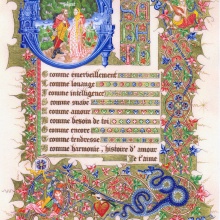 comme emerveillement
comme louange
comme intelligence
comme suave
comme amour
comme besoin de toi
comme encore
comme tendresse
comme harmonie, histoire d'amour
Je t'aime